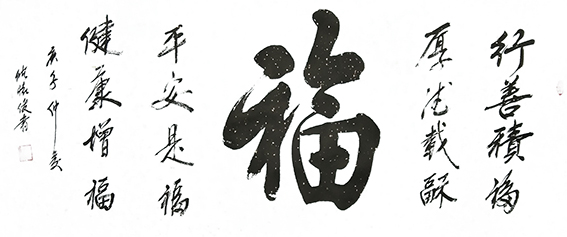 行善積福
厚德載福
福
平安是福
健康增福
庚子仲夏